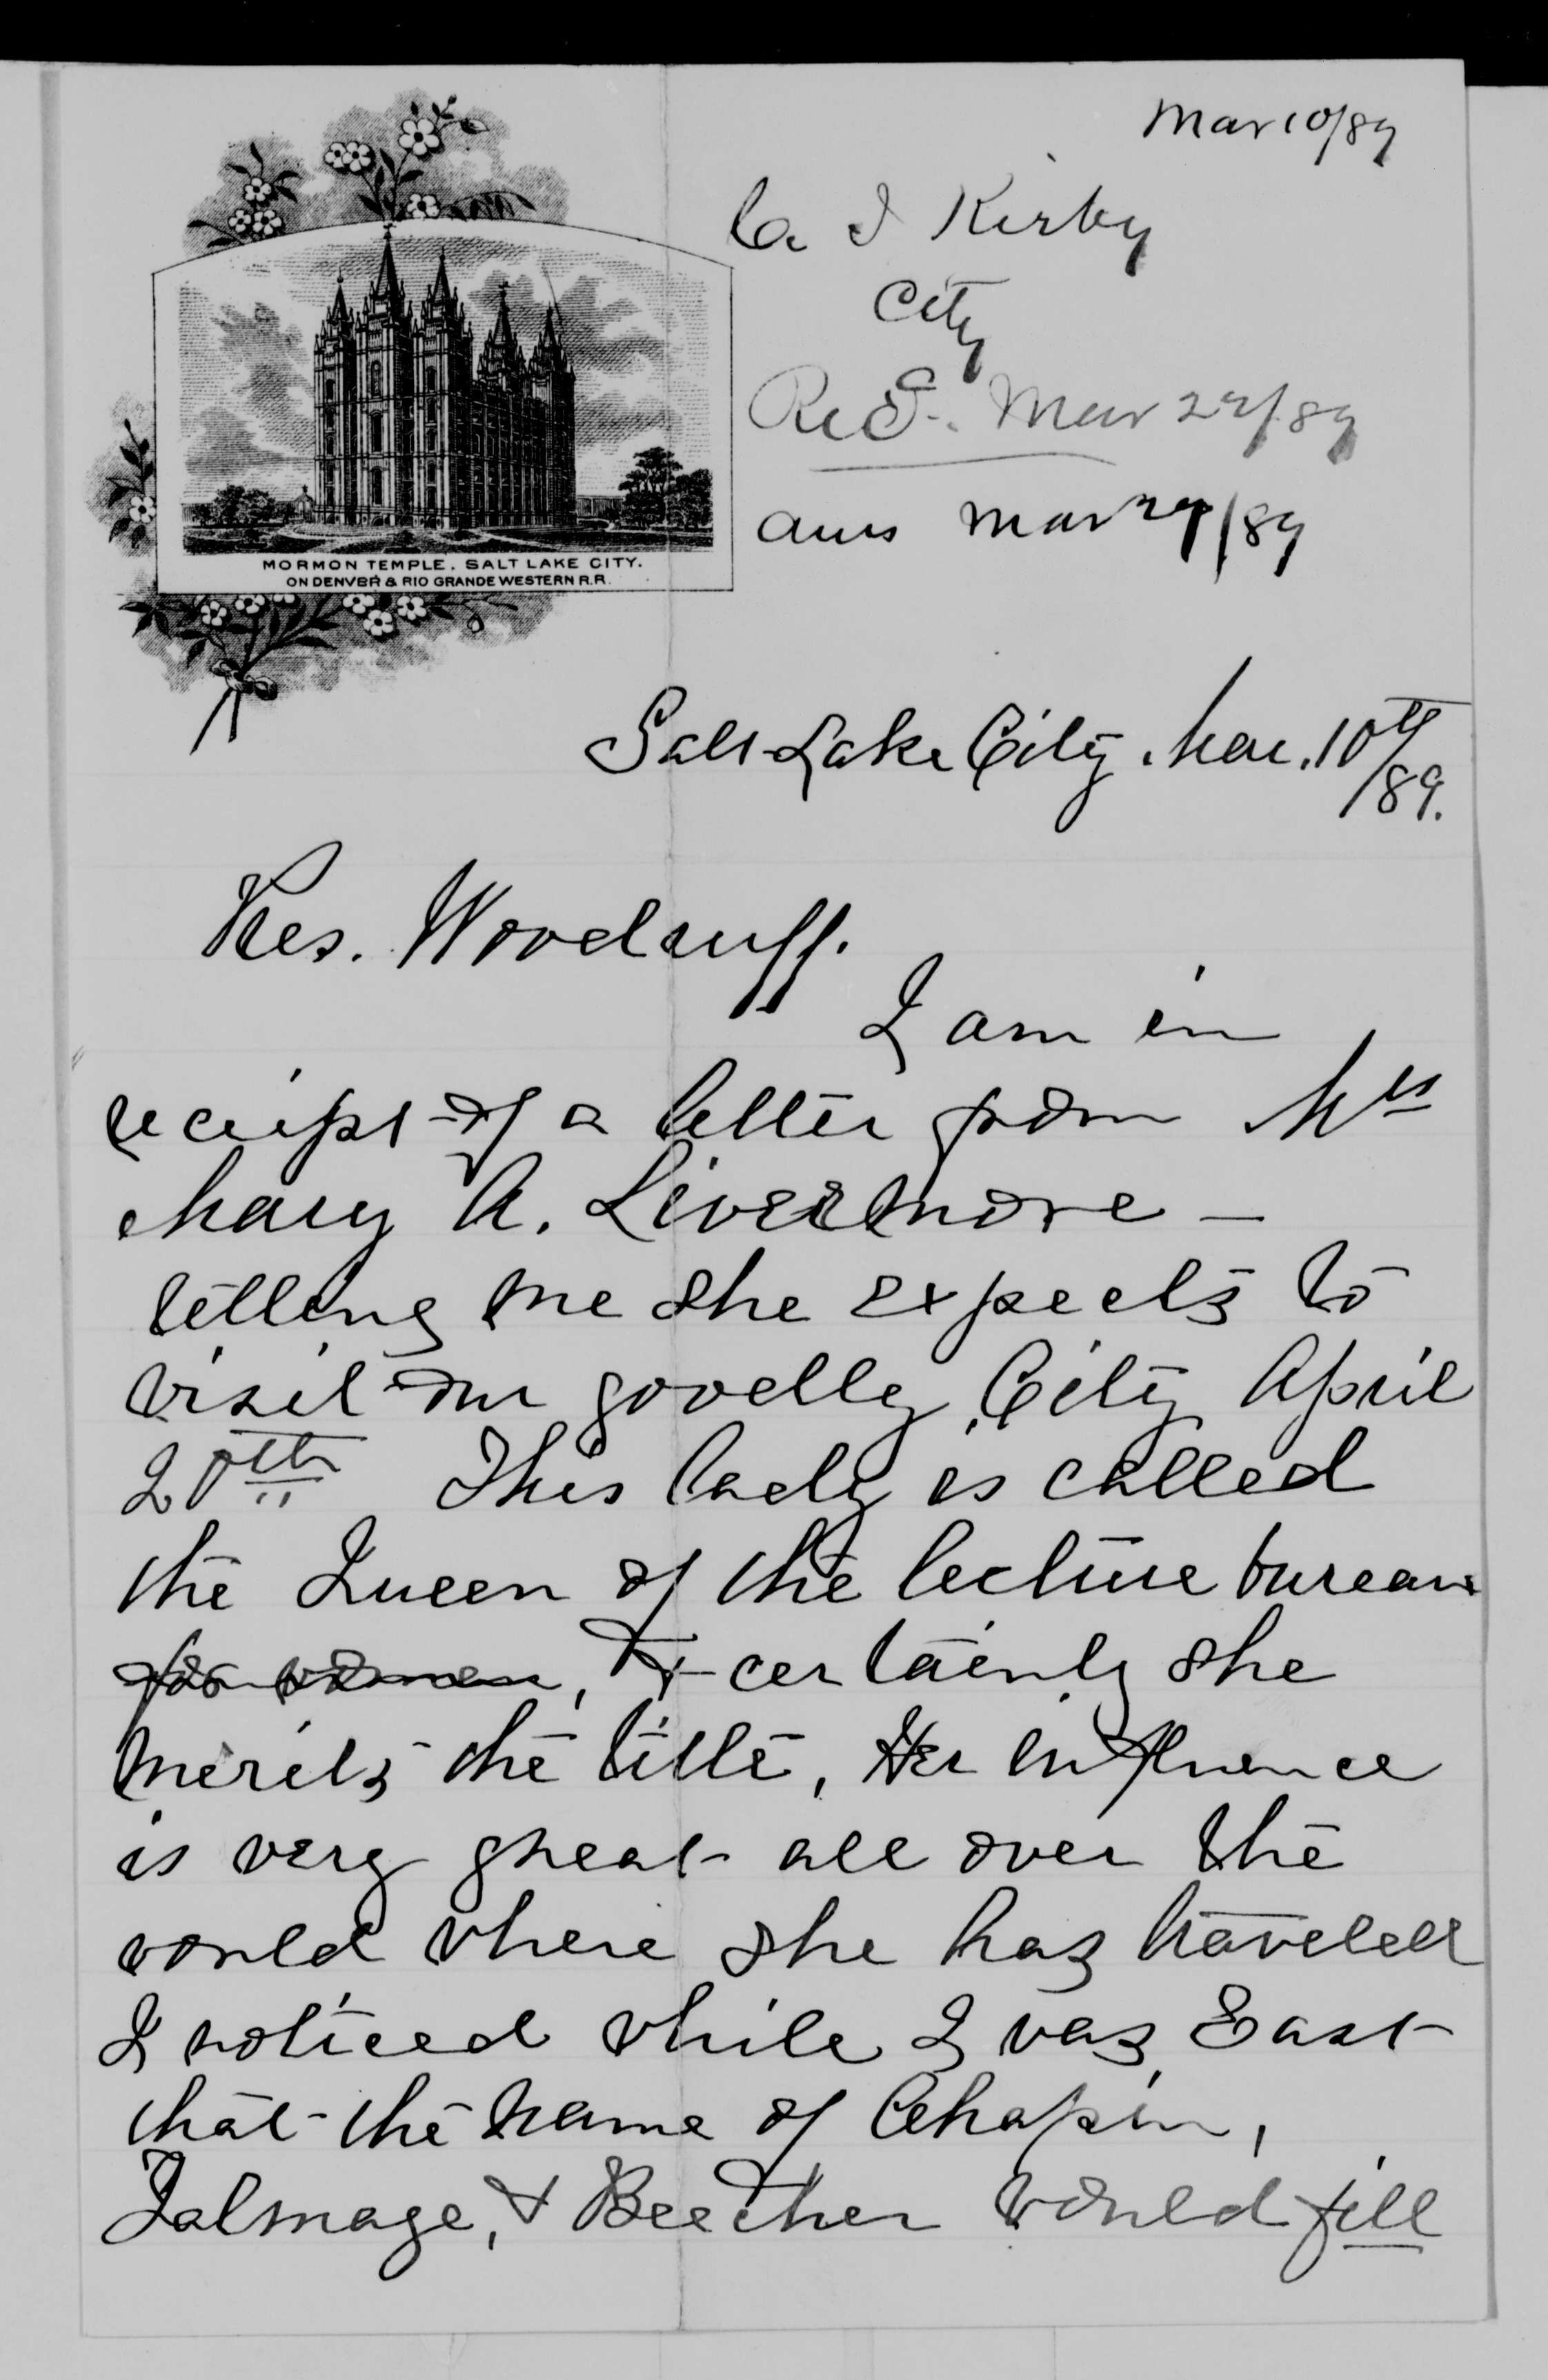 Mar 10/89
C. I Kirby
City
Rec. Mar 27/89
ans Mar 27/89
MORMON TEMPLE, SALT LAKE CITY.
ON DENVER & RIO GRANDE WESTERN R.R.
Salt Lake City. Mar. 10th
/89.
Pres. Woodruff.
I am in
receipt of a letter from Mrs
Mary A. Livermore —
telling me she expects to
visit our goodly City April
20th This lady is called
the Queen of the lecture bureau
for women, & certainly she
merits the title, Her influence
is very great all over the
world where she has traveled
I noticed while I was East
that the name of Chapin,
Talmage, & Beecher would fill